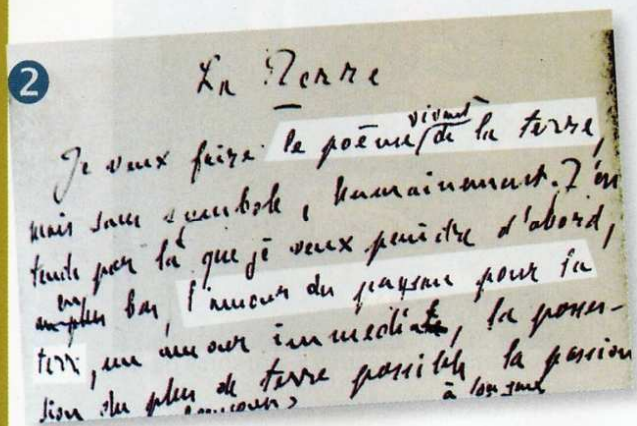 2
La Terre
Je veux faire le poème vivant de la terre,
mais sans symbole, humainement. J'en
tends par là que je veux peindre d'abord,
en bas, l'amour du paysan pour la
terre, un amour immédiat, la posses-
sion du plus de terre possible, la passion